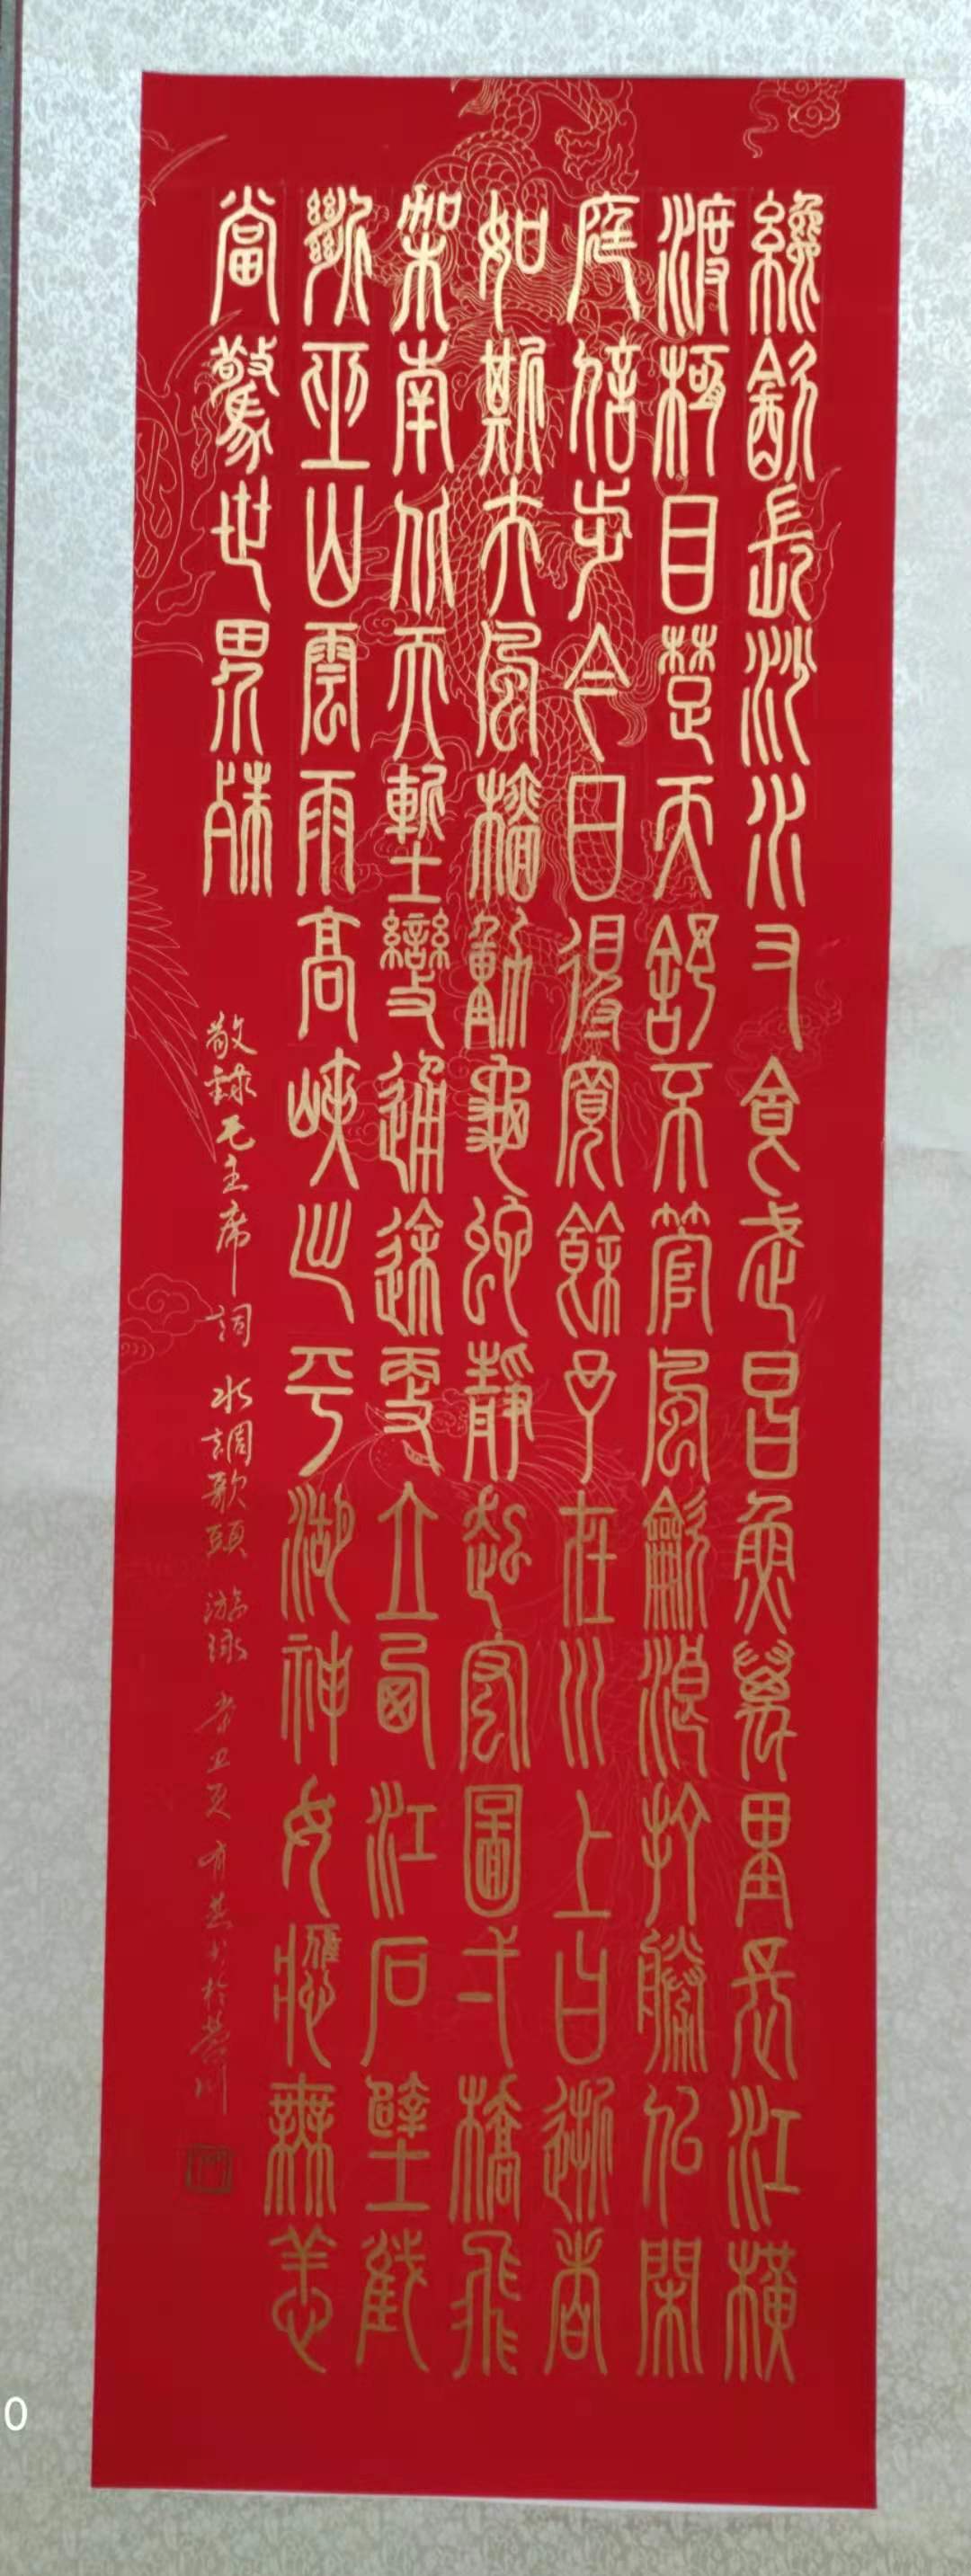 纔飲長沙水又食武昌魚萬里長江橫
渡極目楚天舒不管風龡浪打勝似閑
庭信步今日得寬餘子在川上曰逝者
如斯夫風檣動龜蛇靜起宏圖一橋飛
架南北天塹變通途更立西江石壁截
斷巫山雲雨高峽出平湖神女應無恙
當驚世界殊
敬錄毛主席詞 水調歌頭 游泳 辛丑夏 有
0